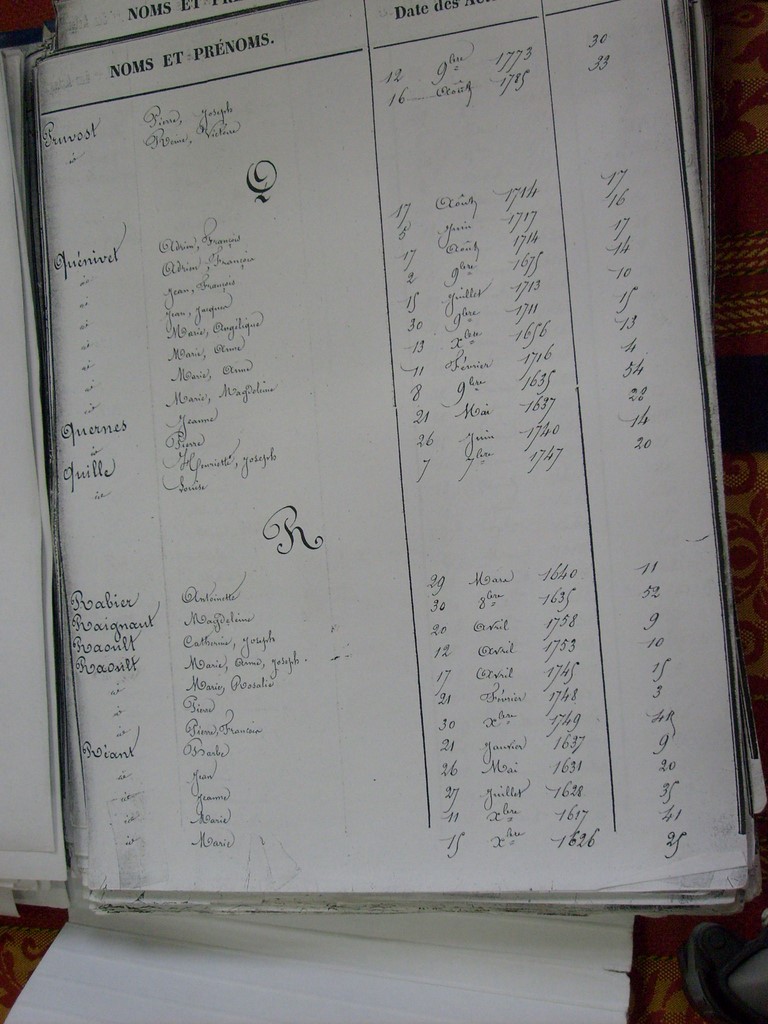 NOMS ET PRÉ
Date des Ac
NOMS ET PRÉNOMS.
Pruvost Pierre, Joseph 12 9bre 1773 30
id Reine, Victoire 16 Août 1785 33
Q
Quénivet Adrien, François 17 Août 1714 17
id Adrien, François 5 Juin 1717 16
id Jean, François 17 Août 1714 17
id Jean, Jacques 2 9bre 1675 14
id Marie, Angélique 15 Juillet 1713 10
id Marie, Anne 30 9bre 1711 15
id Marie, Anne 13 xbre 1656 13
id Marie, Magdeleine 11 Février 1716 4
Quernes Jeanne 8 9bre 1635 54
id Pierre 21 Mai 1637 28
Quille Henriette, Joseph 26 Juin 1740 14
id Louise 7 7bre 1747 20
R
Rabier Antoinette 29 Mars 1640 11
Raignaut Magdeleine 30 8bre 1635 52
Raoult Catherine, Joseph 20 Avril 1758 9
Raoult Marie, Anne, Joseph 12 Avril 1753 10
id Marie, Rosalie 17 Avril 1745 15
id Pierre 21 Février 1748 3
id Pierre, François 30 xbre 1749
Réant Barbe 21 Janvier 1637 9
id Jean 26 Mai 1631 20
id Jeanne 27 Juillet 1628 35
id Marie 11 xbre 1617 41
id Marie 15 xbre 1626 25